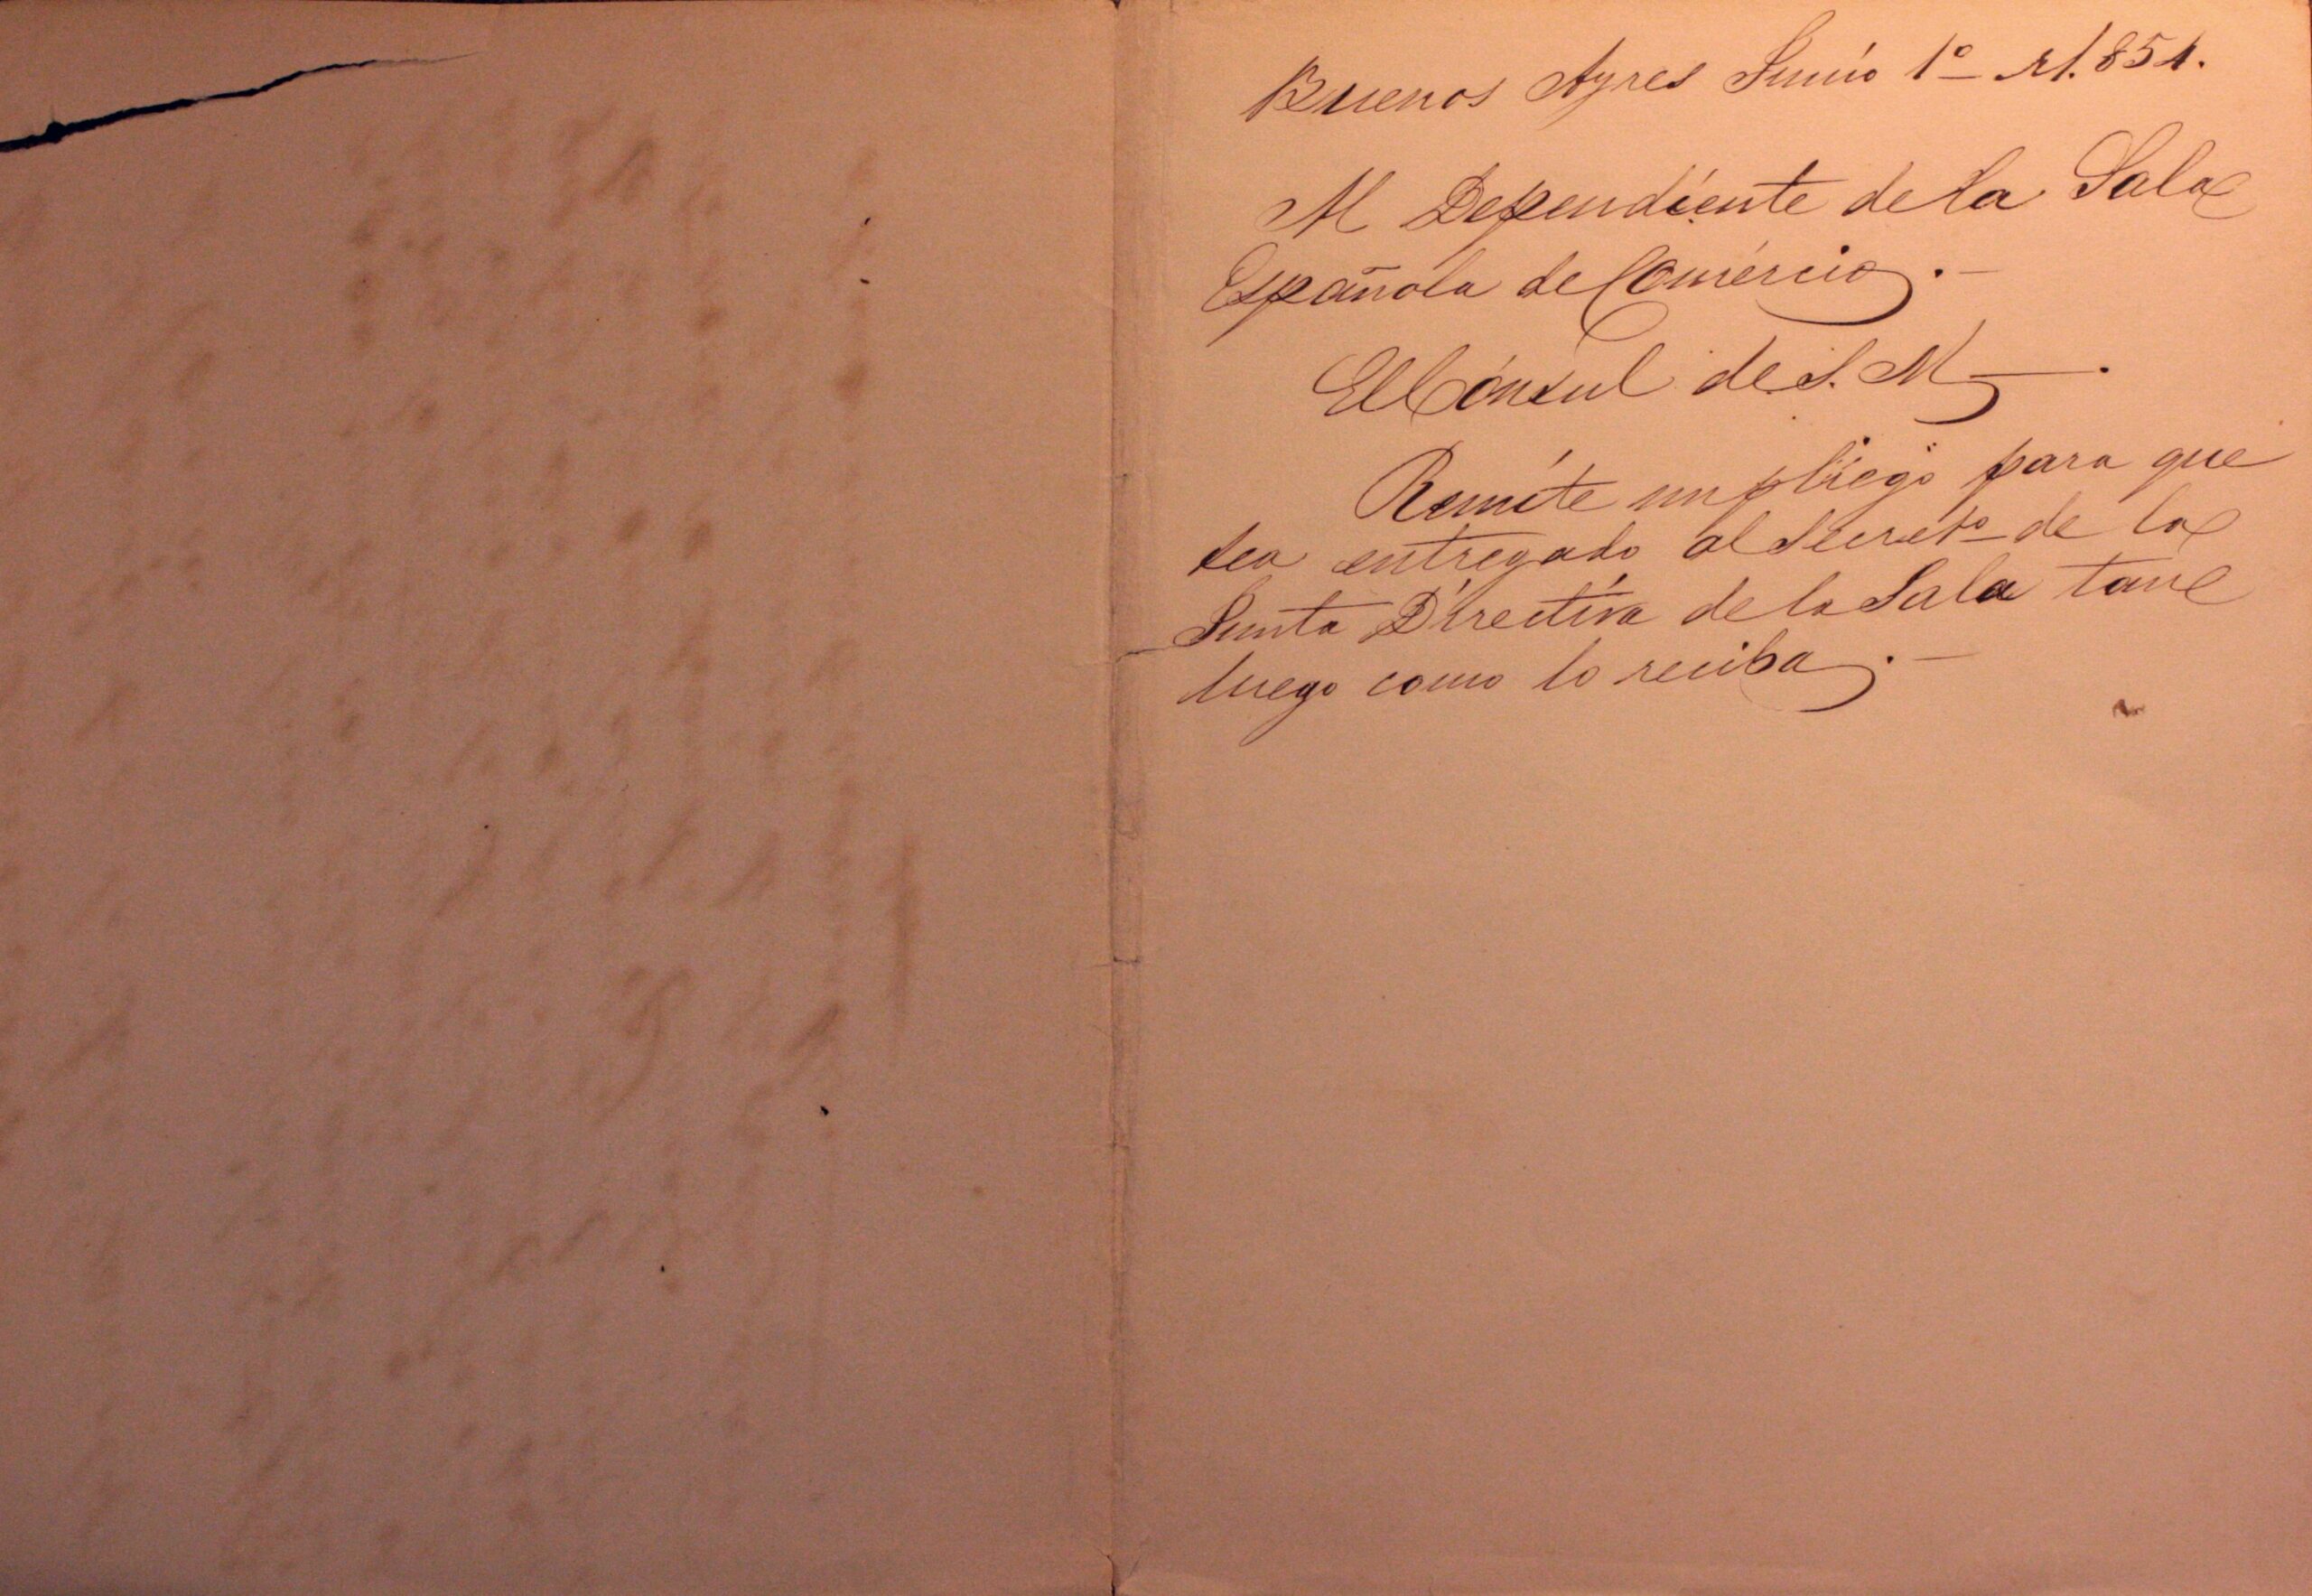 Buenos Ayres Junio 1º d 1.854.
Al Dependiente de la Sala
Española de Comercio.—
El Cónsul de S. M—.
Remite un pliego para que
sea entregado al Secretº de la
Junta Directiva de la Sala tan
luego como lo reciba.—